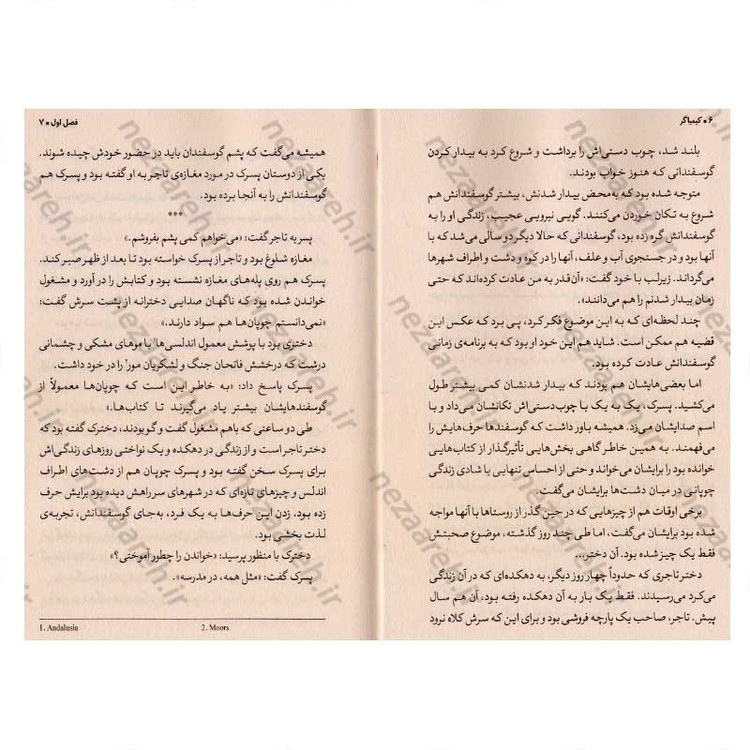 ۶ • کیمیاگر
بلند شد، چوب دستی‌اش را برداشت و شروع کرد به بیدار کردن
گوسفندانی که هنوز خواب بودند.
متوجه شده بود که به‌محض بیدار شدنش، بیشتر گوسفندانش هم
شروع به تکان خوردن می‌کنند. گویی نیرویی عجیب، زندگی او را به
گوسفندانش گره زده بود، گوسفندانی که حالا دیگر دو سالی می‌شد که با
آنها بود و در جستجوی آب و علف، آنها را در کوه و دشت و اطراف شهرها
می‌گرداند. زیرلب با خود گفت: «آن‌قدر به من عادت کرده‌اند که حتی
زمان بیدار شدنم را هم می‌دانند».
چند لحظه‌ای که به این موضوع فکر کرد، پی برد که عکس این
قضیه هم ممکن است. شاید هم این خود او بود که به برنامه‌ی زمانی
گوسفندانش عادت کرده بود.
اما بعضی‌هایشان هم بودند که بیدار شدنشان کمی بیشتر طول
می‌کشید. پسرک، یک به یک با چوب‌دستی‌اش تکانشان می‌داد و با
اسم صدایشان می‌زد. همیشه باور داشت که گوسفندها حرف‌هایش را
می‌فهمند. به همین خاطر گاهی بخش‌هایی تأثیرگذار از کتاب‌هایی
خوانده بود را برایشان می‌خواند و حتی از احساس تنهایی یا شادی زندگی
چوپانی در میان دشت‌ها برایشان می‌گفت.
برخی اوقات هم از چیزهایی که در حین گذار از روستاها با آنها مواجه
شده بود برایشان می‌گفت، اما طی چند روز گذشته، موضوع صحبتش
فقط یک چیز شده بود. آن دختر...
دختر تاجری که حدوداً چهار روز دیگر، به دهکده‌ای که در آن زندگی
می‌کرد می‌رسیدند. فقط یک بار به آن دهکده رفته بود، آن هم سال
پیش. تاجر، صاحب یک پارچه فروشی بود و برای این که سرش کلاه نرود
فصل اول • ۷
همیشه می‌گفت که پشم گوسفندان باید در حضور خودش چیده شوند.
یکی از دوستان پسرک در مورد مغازه‌ی تاجر به او گفته بود و پسرک هم
گوسفندانش را به آنجا برده بود.
***
پسر به تاجر گفت: «می‌خواهم کمی پشم بفروشم.»
مغازه شلوغ بود و تاجر از پسرک خواسته بود تا بعد از ظهر صبر کند.
پسرک هم روی پله‌های مغازه نشسته بود و کتابش را در آورد و مشغول
خواندن شده بود که ناگهان صدایی دخترانه از پشت سرش گفت:
«نمی‌دانستم چوپان‌ها هم سواد دارند.»
دختری بود با پرشش معمول اندلسی‌ها با موهای مشکی و چشمانی
درشت که درخشش فاتحان جنگ و لشکریان مور² را در خود داشت.
پسرک پاسخ داد: «به خاطر این است که چوپان‌ها معمولاً از
گوسفندهایشان بیشتر یاد می‌گیرند تا کتاب‌ها.»
طی دو ساعتی که باهم مشغول گفت و گو بودند، دخترک گفته بود که
دختر تاجر است و از زندگی در دهکده و یک نواختی روزهای زندگی‌اش
برای پسرک سخن گفته بود و پسرک چوپان هم از دشت‌های اطراف
اندلس و چیزهای تازه‌ای که در شهرهای سر راهش دیده بود برایش حرف
زده بود. زدن این حرف‌ها به یک فرد، به‌جای گوسفندانش، تجربه‌ی
لذت بخشی بود.
دخترک با منظور پرسید: «خواندن را چطور آموختی؟»
پسرک گفت: «مثل همه، در مدرسه».
1. Andalusia 2. Moors
nezaareh.ir